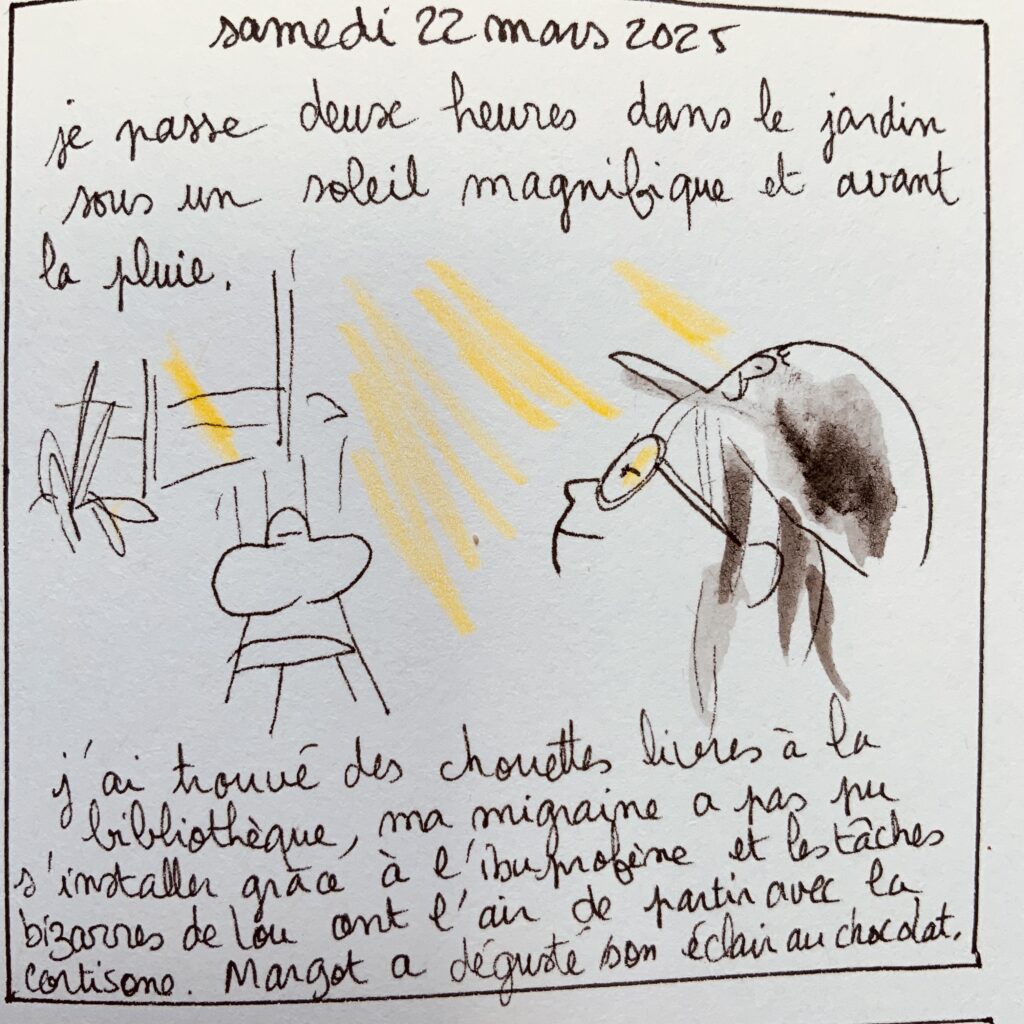 samedi 22 mars 2025
je passe deux heures dans le jardin
sous un soleil magnifique et avant
la pluie.
j'ai trouvé des chouettes livres à la
bibliothèque, ma migraine a pas pu
s'installer grâce à l'ibuprofène et les tâches
bizarres de Lou ont l'air de partir avec la
cortisone. Margot a dégusté son éclair au chocolat.